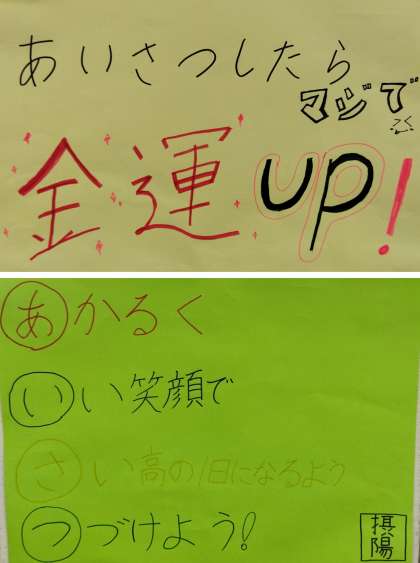 あいさつしたら
マジで
金運up!
あかるく
いい笑顔で
さい高の1日になるよう
つづけよう!
摂陽